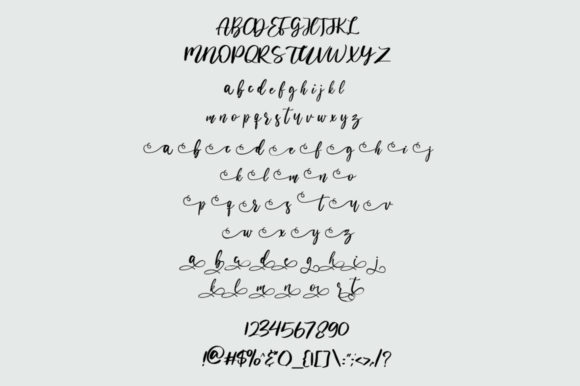 ABCDEFGHIJKL
MNOPQRSTUVWXYZ
abcdefghijkl
mnopqrstuvwxyz
abcdefghij
klmno
pqrstuv
wxyz
abadeghij
klmnort
1234567890
!@#$%^&*()_{}[]\:";<>,/?